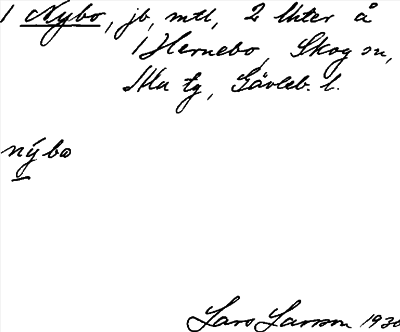 1 Nybo, jb, mtl, 2 lhter å
1 Hernebo, Skog sn,
Ala tg, Gävleb. l.
nýbo
Lars Larsson 1930